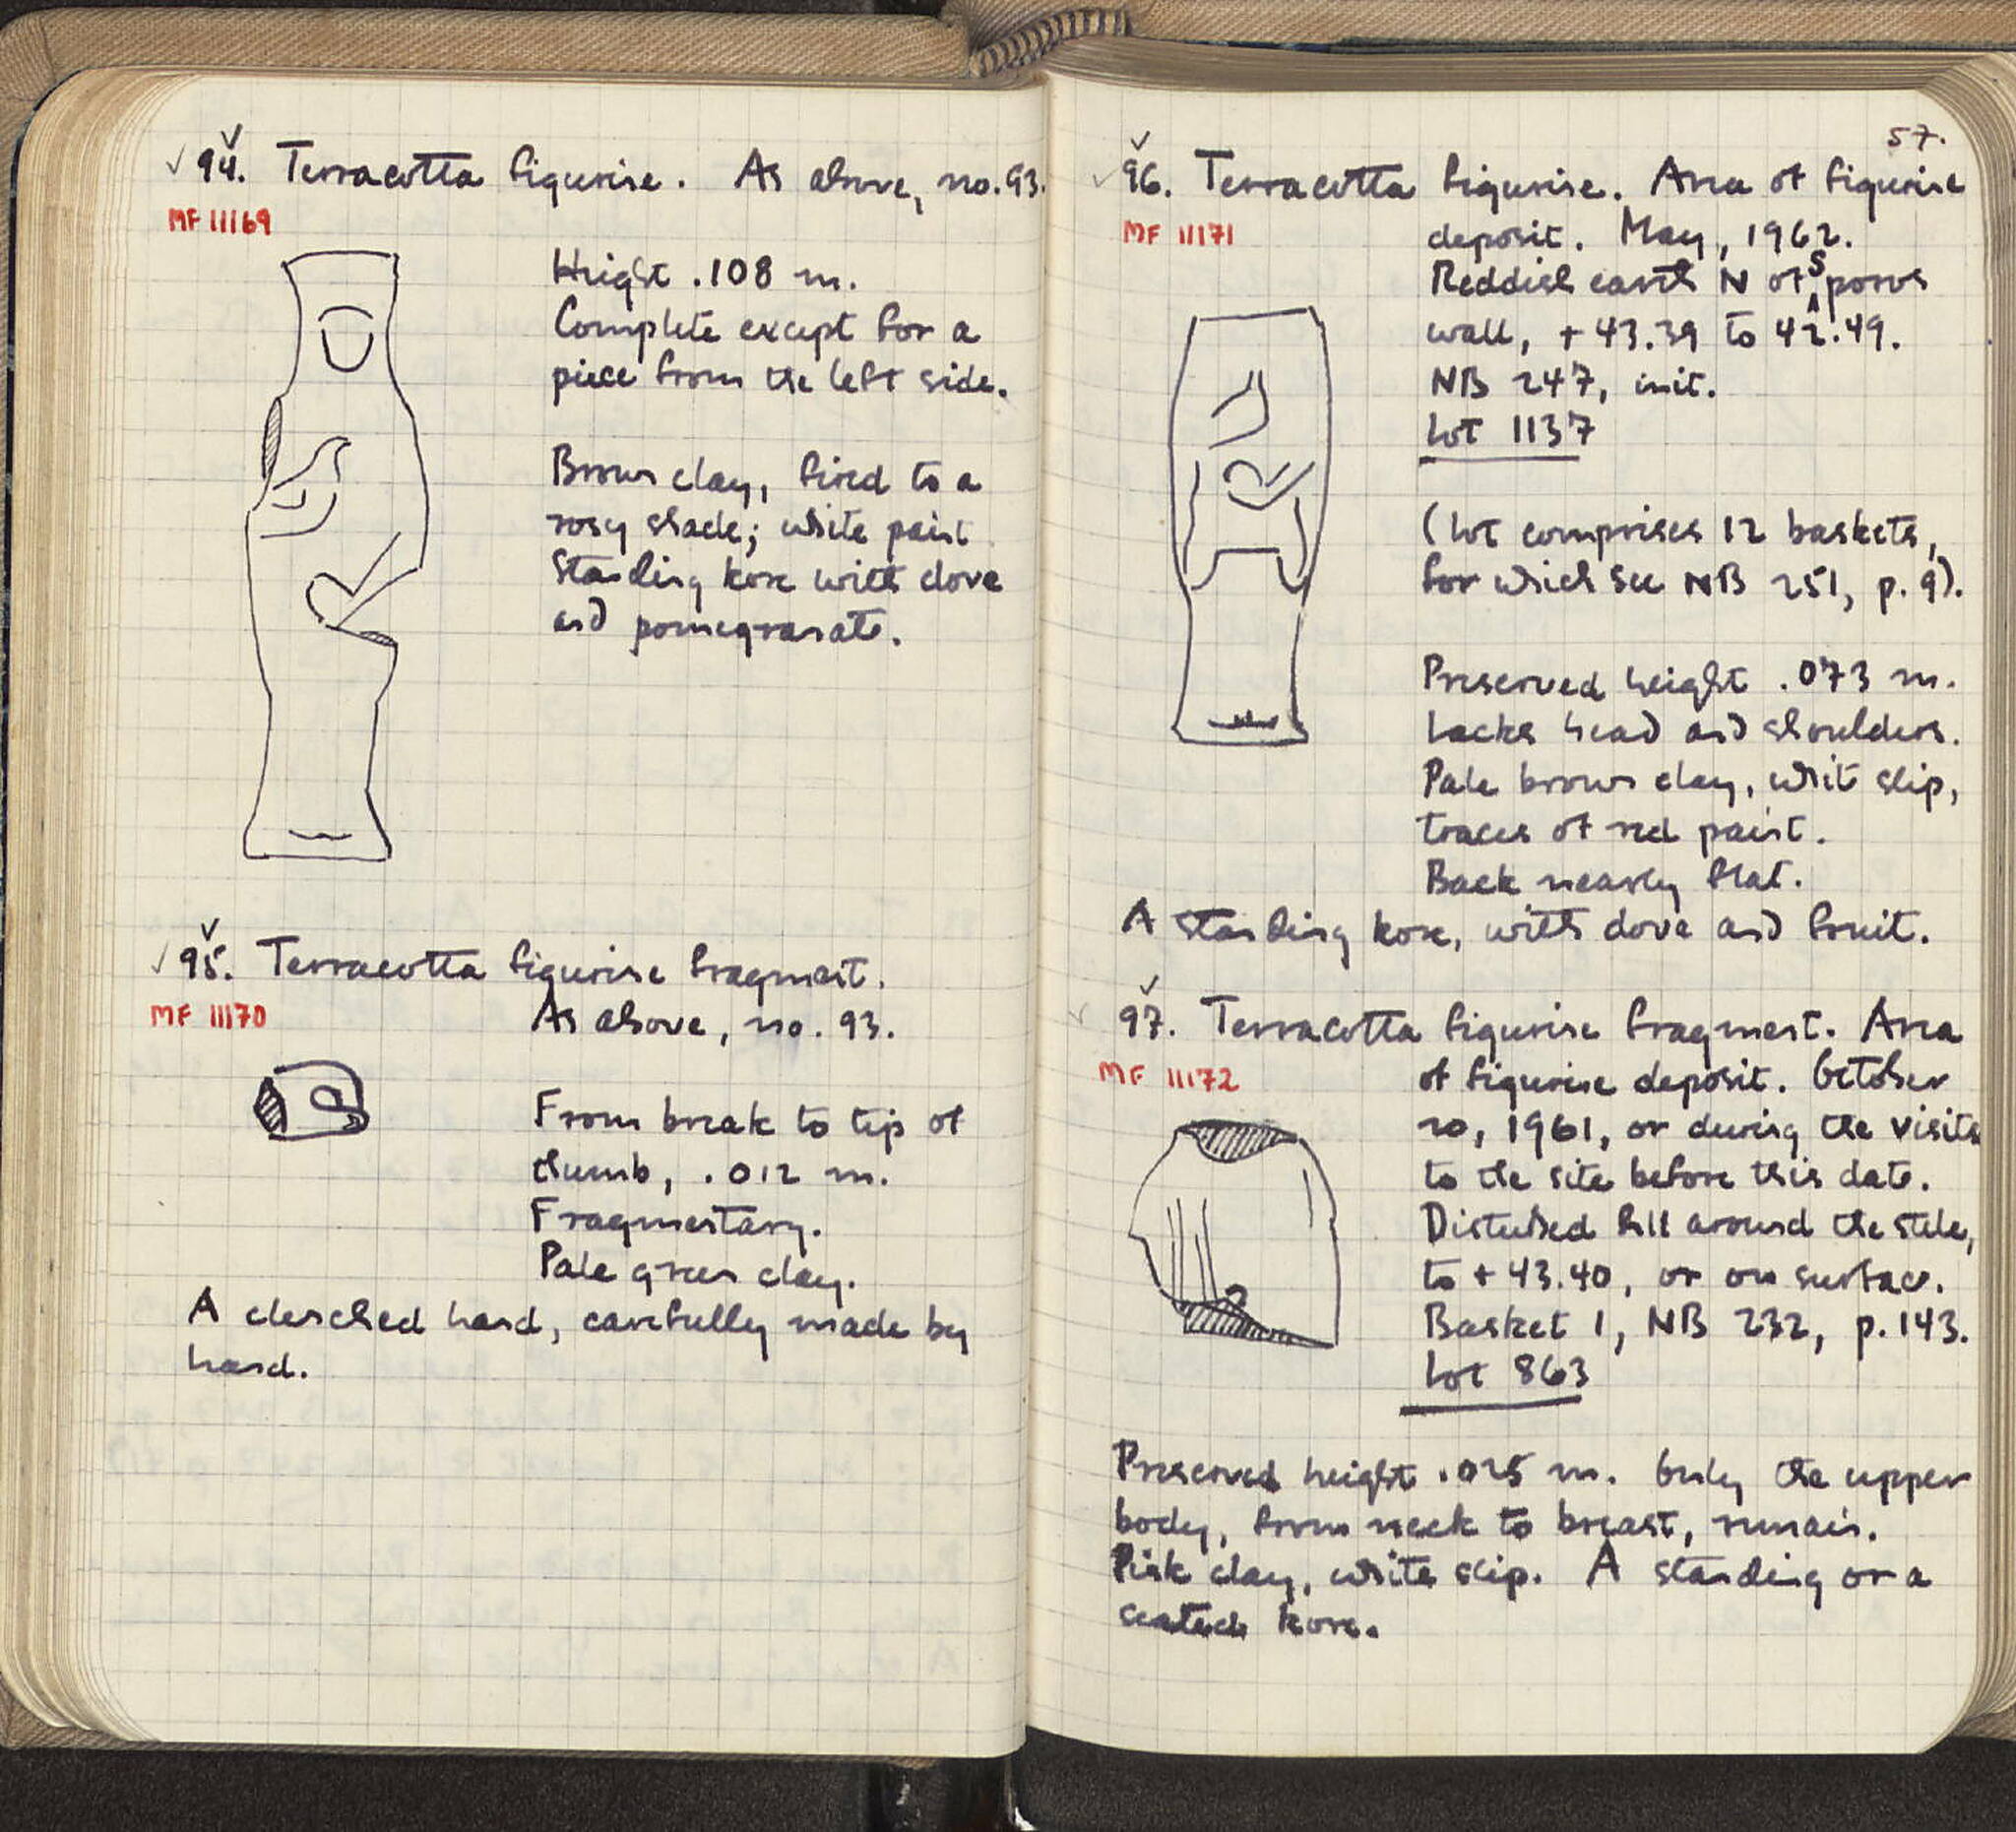 ✓ 94. Terracotta figurine. As above, no. 93.
MF 11169
Height .108 m.
Complete except for a
piece from the left side.
Brown clay, fired to a
rosy shade; white paint
Standing kore with dove
and pomegranate.
✓ 95. Terracotta figurine fragment.
MF 11170
As above, no. 93.
From break to tip of
thumb, .012 m.
Fragmentary.
Pale green clay.
A clenched hand, carefully made by
hand.
57.
✓ 96. Terracotta figurine. Area of figurine
MF 11171
deposit. May, 1962.
Reddish earth N of S poros
wall, + 43.39 to 42.49.
NB 247, init.
Lot 1137
(Lot comprises 12 baskets,
for which see NB 251, p. 9).
Preserved height .073 m.
Lacks head and shoulders.
Pale brown clay, whit slip,
traces of red paint.
Back nearly flat.
A standing kore, with dove and fruit.
✓ 97. Terracotta figurine fragment. Area
MF 11172
of figurine deposit. October
20, 1961, or during the visits
to the site before this date.
Disturbed fill around the stele,
to + 43.40, or on surface.
Basket 1, NB 232, p. 143.
Lot 863
Preserved height .025 m. Only the upper
body, from neck to breast, remain.
Pink clay, white slip. A standing or a
seated kore.